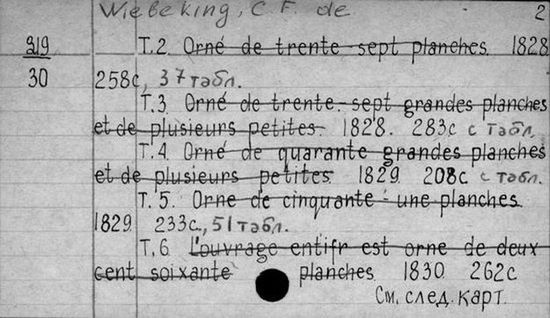 Wiebeking, C. F. de 2
319 T.2 Orné de trente-sept planches 1828
30 258с, 37 табл.
T.3 Orné de trente-sept grandes planches
et de plusieurs petites 1828. 283с с табл.
T.4 Orné de quarante grandes planches
et de plusieurs petites 1829 208с с табл.
T.5. Orne de cinquante-une planches
1829 233с., 51 табл.
T.6 L'ouvrage entifr est orne de deux
cent soixante planches 1830 262с
См. след. карт.